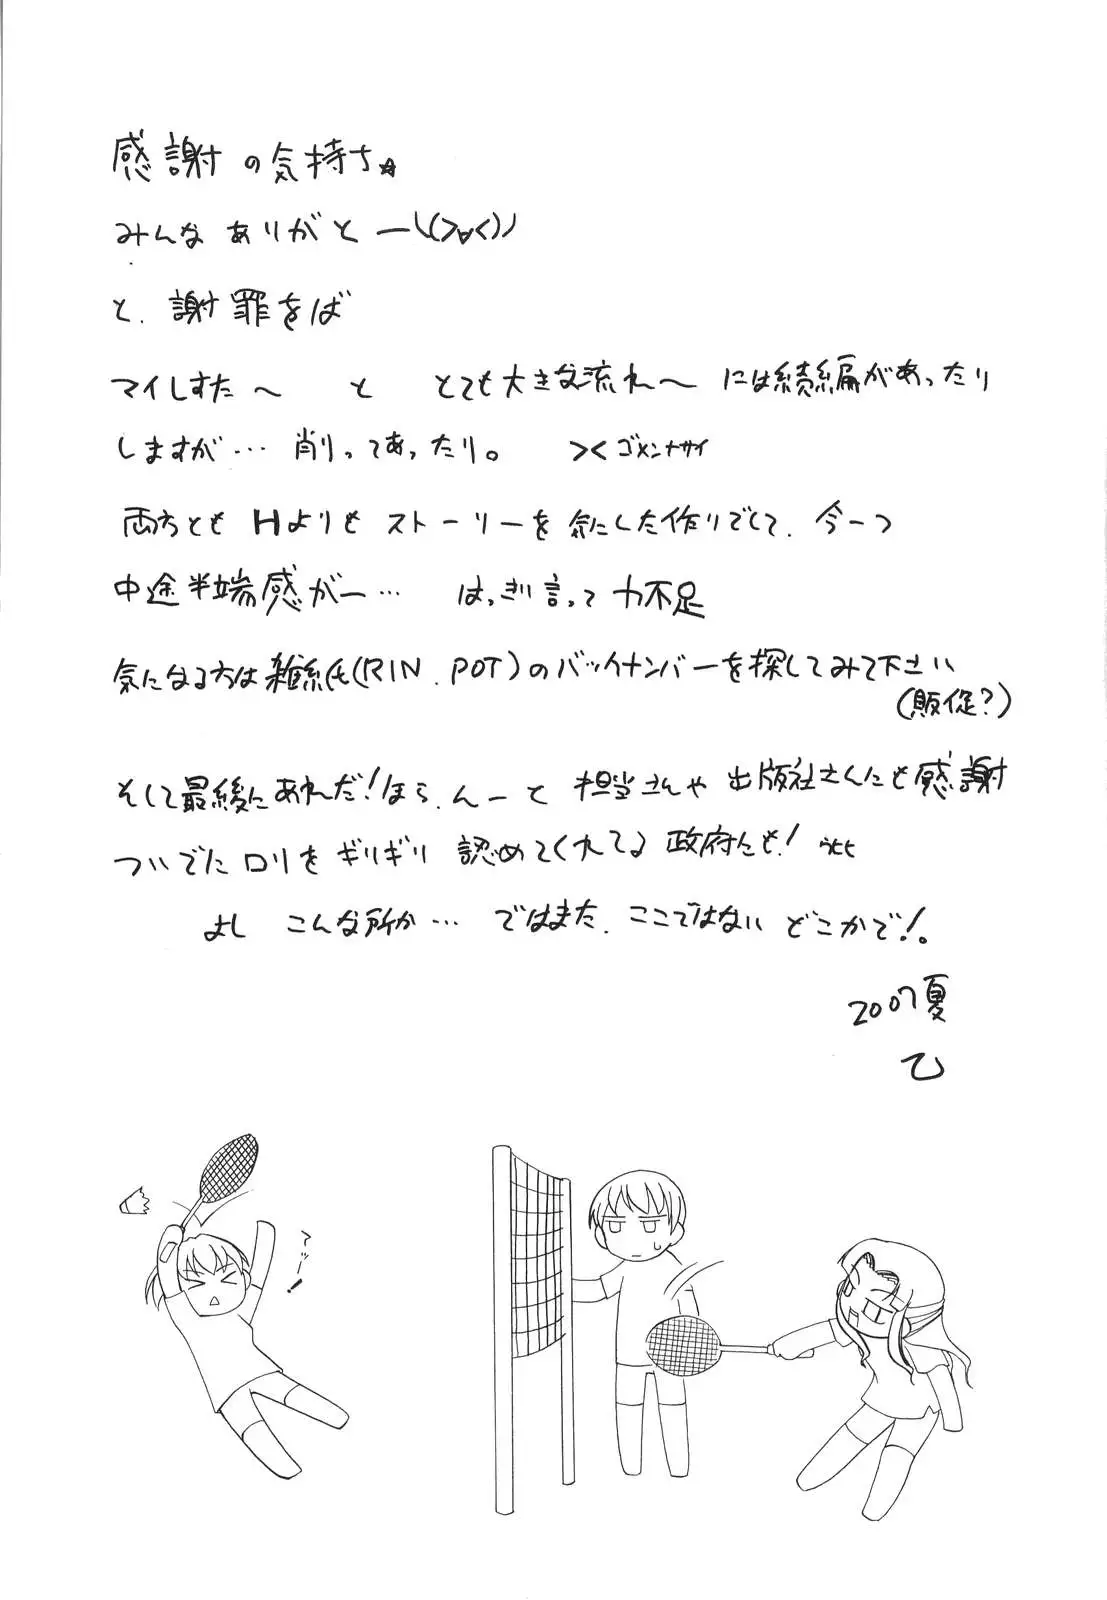 感謝の気持ち☆
みんなありがとー\(>∀<)ノ
と、謝罪をば
マイしすた〜 と とても大きな流れ〜 には続編があったり
しますが… 削ってあったり。 ><ゴメンナサイ
両方とも Hよりも ストーリーを気にした作りでして、今一つ
中途半端感がー… はっきり言って力不足
気になる方は雑誌(RIN、POT)のバックナンバーを探してみて下さい
(販促?)
そして最後にあれだ!ほら、んーと 担当さんや 出版社さんにも感謝
ついでにロリをギリギリ 認めてくれてる 政府にも!
よし こんな所か… ではまた、ここではないどこかで!。
2007夏
乙
てぃー!